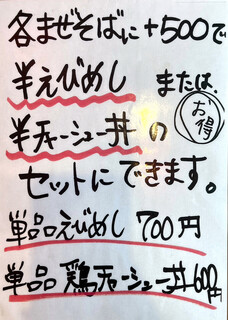 各まぜそばに+500で
半えびめし または、
お得
半チャーシュー丼の
セットにできます。
単品えびめし 700円
単品 鶏チャーシュー丼600円